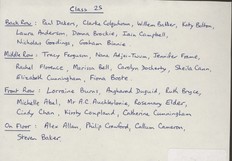 Class 2S
Back Row: Paul Dakers, Clarke Colquhoun, William Barker, Katy Bolton,
Laura Anderson, Donna Brackie, Iain Campbell,
Nicholas Goodings, Graham Binnie
Middle Row: Tracy Ferguson, Nona Adjei-Tuoin, Jennifer Frame,
Rachel Florence, Marissa Bell, Carolyn Docherty, Sheila Cann,
Elizabeth Cunningham, Fiona Boote
Front Row: Lorraine Burns, Ruth Bryce,
Michelle Abel, Mr A.C. Auchlolonie, Rosemary Elder,
Cindy Chan, Kirsty Coupland, Catherine Cunningham
On Floor: Alex Allan, Philip Crawford, Callum Cameron,
Steven Baker